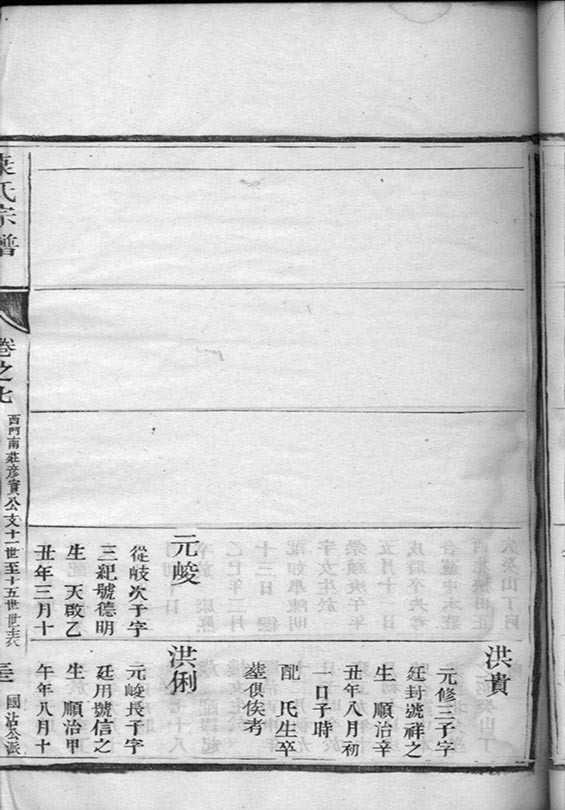 洪貴
元修三子字
廷封號祥之
生 順治辛
丑年八月初
一日子時
配 氏生卒
塟俱俟考
元峻
從岐次子字
三紀號德明
生 天啟乙
丑年三月十
洪俐
元峻長子字
廷用號信之
生 順治甲
午年八月十
袁氏宗譜
卷之七
西門南莊彦實公支十一世至十五世世表
國沾公派